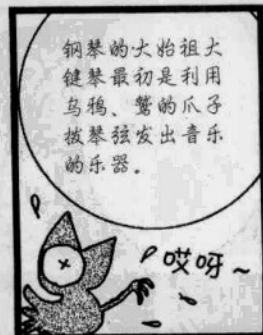 钢琴的大始祖大
键琴最初是利用
乌鸦、鹫的爪子
拔琴弦发出音乐
的乐器。
哎呀~